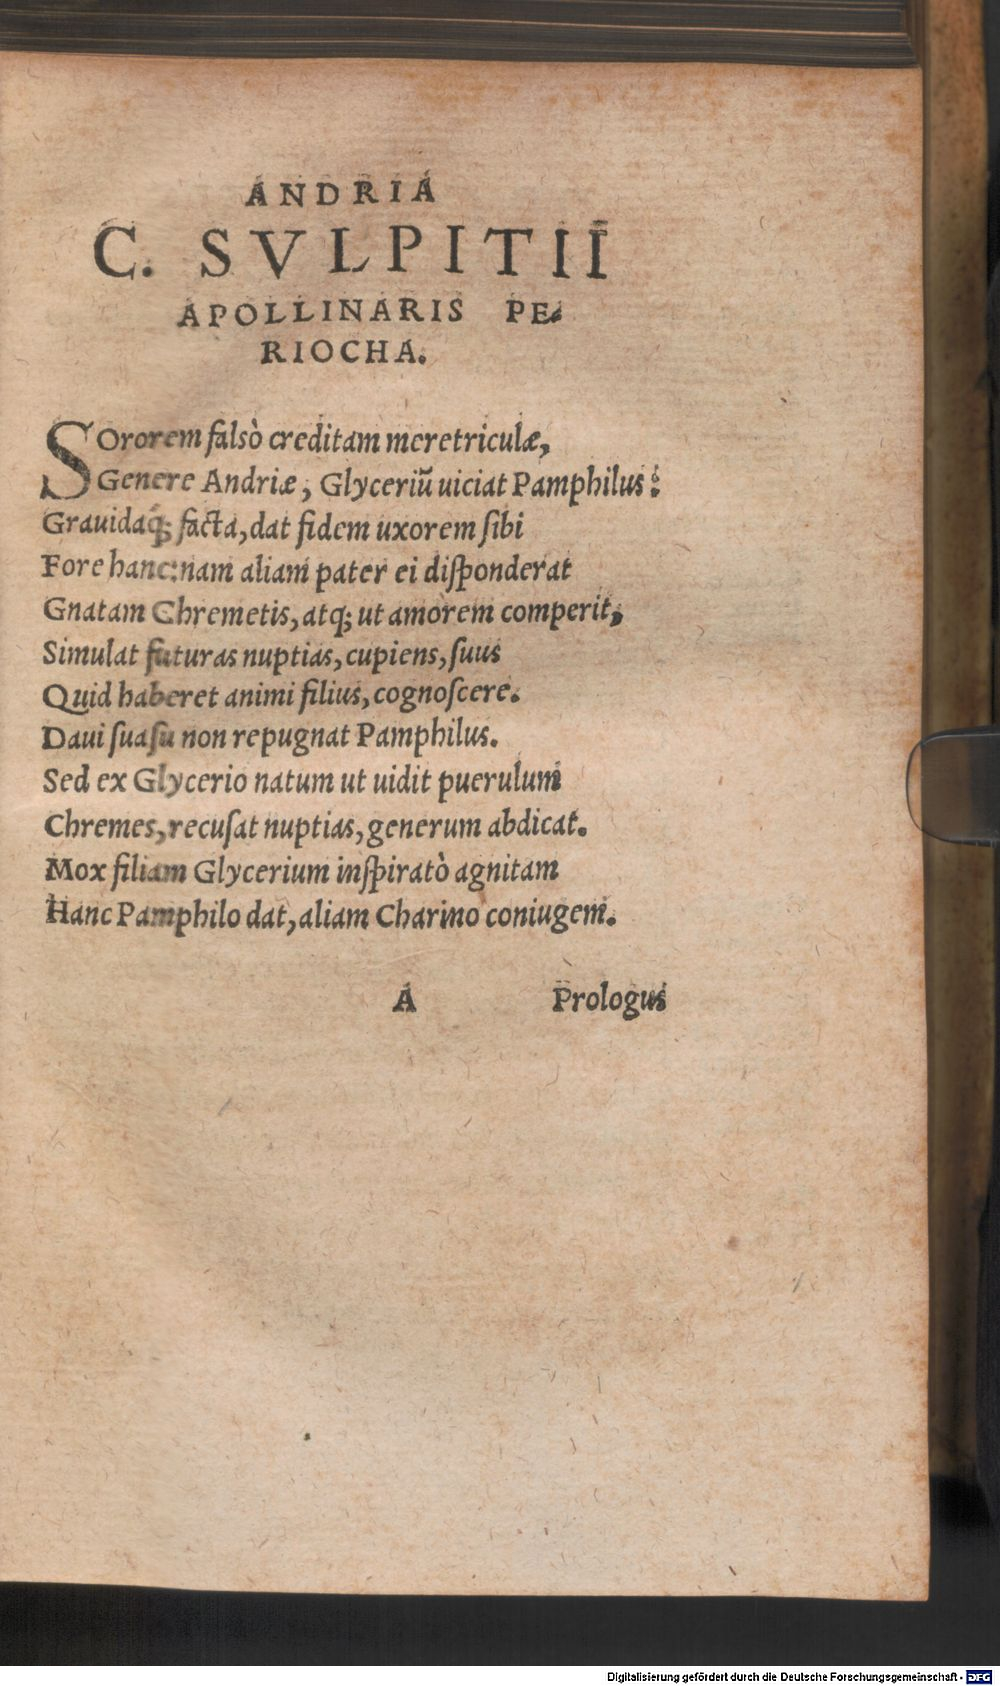 ANDRIA
C. SVLPITII
APOLLINARIS PE-
RIOCHA.
SOrorem falsò creditam meretriculæ,
Genere Andriæ, Glyceriũ uiciat Pamphilus:
Grauidaq́; facta, dat fidem uxorem ſibi
Fore hanc: nam aliam pater ei diſponderat
Gnatam Chremetis, atq; ut amorem comperit,
Simulat futuras nuptias, cupiens, ſuus
Quid haberet animi filius, cognoſcere.
Daui ſuaſu non repugnat Pamphilus.
Sed ex Glycerio natum ut uidit puerulum
Chremes, recuſat nuptias, generum abdicat.
Mox filiam Glycerium inſpiratò agnitam
Hanc Pamphilo dat, aliam Charino coniugem.
A Prologus
Digitalisierung gefördert durch die Deutsche Forschungsgemeinschaft - DFG